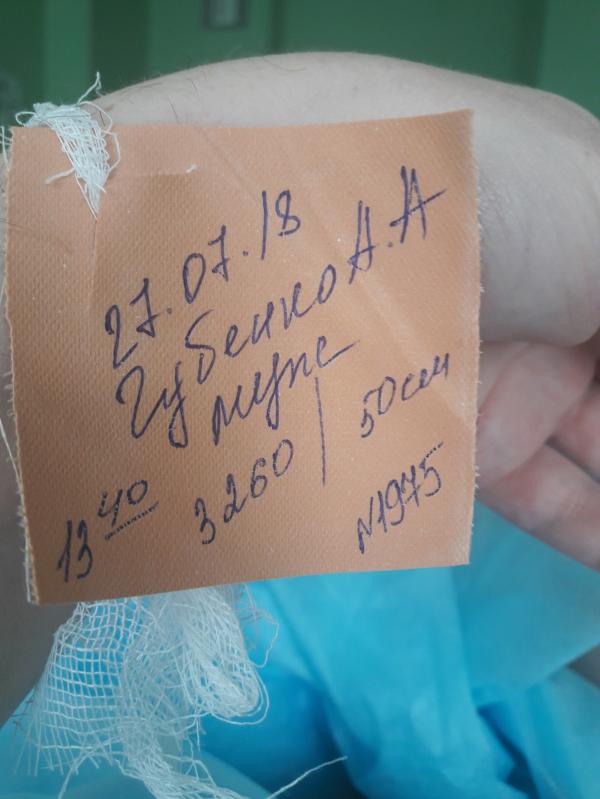 27.07.18
Губенко А.А
муж
13 40 3260 | 50см
N1975